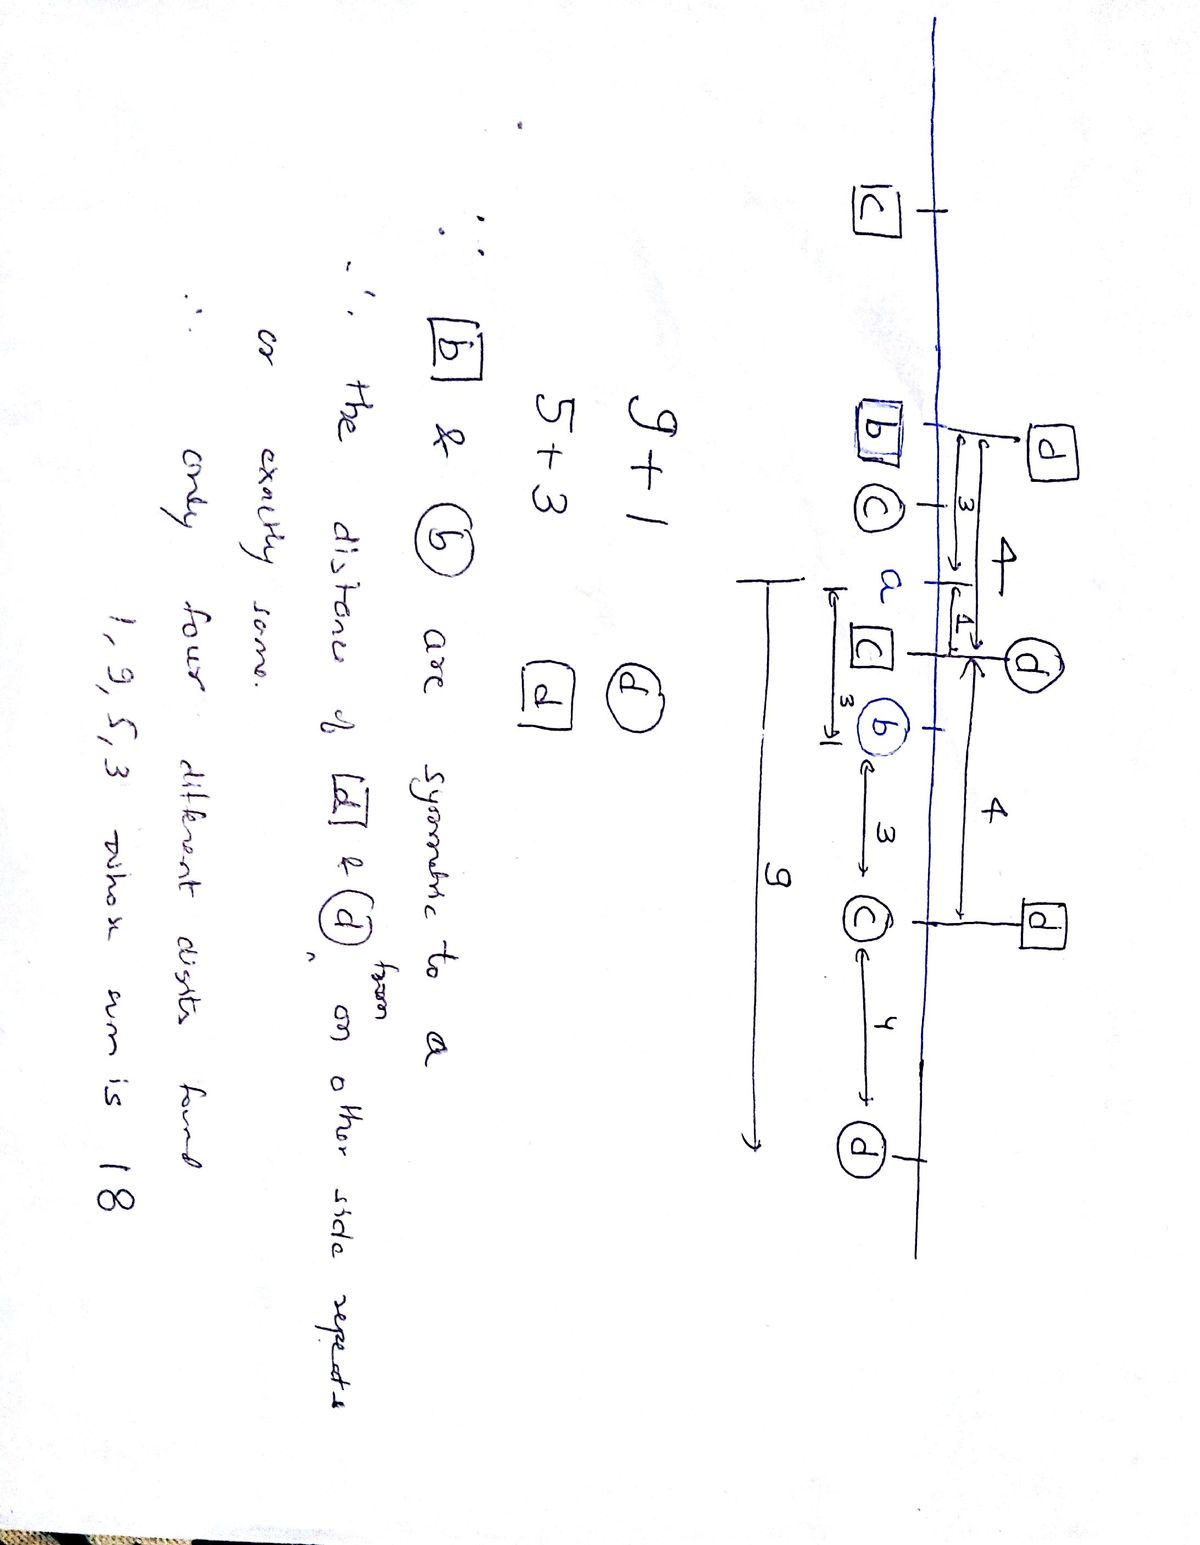 d d d
4 4
3 1
c b c a c b 3 c 4 d
3
9
9+1 d
5+3 d
∵ b & b are symmetric to a
∴ the distance of d & d from on other side repeats
or exactly same.
∴ only four different digits found
1, 9, 5, 3 whose sum is 18